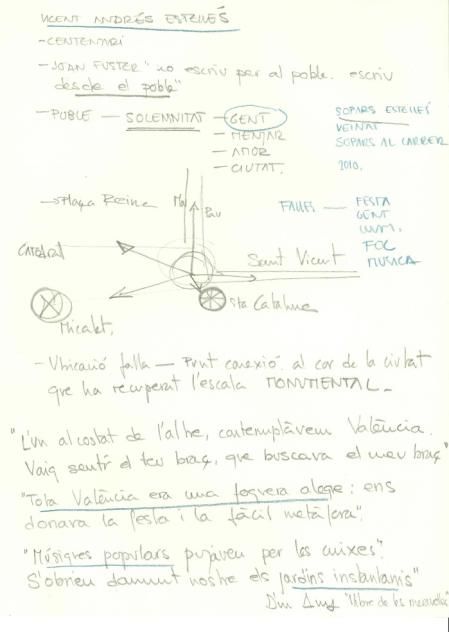 VICENT ANDRÉS ESTELLÉS
- CENTENARI
- JOAN FUSTER "no escriu per al poble. escriu
desde el poble"
- POBLE — SOLEMNITAT — GENT
- MENJAR
- AMOR
- CIUTAT.
SOPARS ESTELLÉS
VEINAT
SOPARS AL CARRER
2010.
FALLES — FESTA
GENT
LLUM.
FOC
MUSICA
→ Plaça Reina
Pau
CATEDRAL
Sant Vicent
Micalet.
Sta Catalina
- Ubicació falla — Punt conexió al cor de la ciutat
que ha recuperat l'escala MONUMENTAL_
"L'un al costat de l'altre, contemplàvem València.
Vaig sentir el teu braç, que buscava el meu braç"
"Tota València era una foguera alegre: ens
donava la festa i la fàcil metàfora".
"Músiques populars pujaven per les cuixes".
S'obrien damunt nostre els jardins instantanis"
"Llibre de les meravelles"